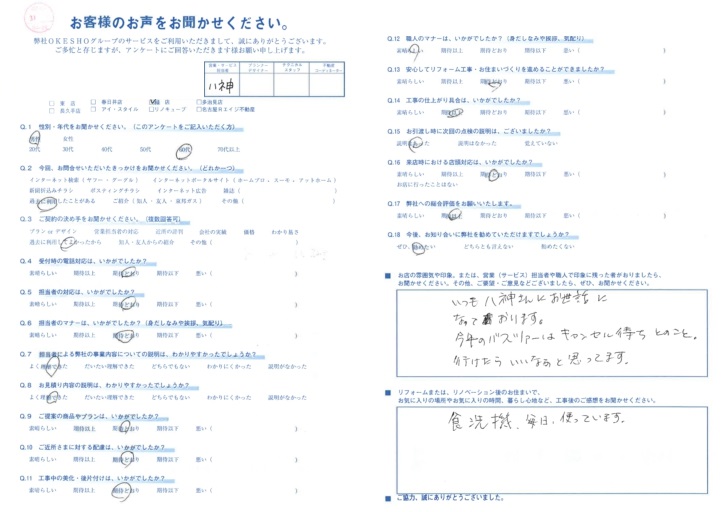 お客様のお声をお聞かせください。
弊社OKESHOグループのサービスをご利用いただきまして、誠にありがとうございます。
ご多忙と存じますが、アンケートにご回答いただきます様お願い申し上げます。
営業・サービス担当者
プランナーデザイナー
テクニカルスタッフ
不動産コーディネーター
八神
□ 東 店 □ 春日井店 店 □多治見店
□ 長久手店 □ アイ・スタイル □リノキューブ □名古屋REイン不動産
Q.1 性別・年代をお聞かせください。(このアンケートをご記入いただく方)
男性 女性
20代 30代 40代 50代 60代 70代以上
Q.2 今回、お問合せいただいたきっかけをお聞かせください。(どれか一つ)
インターネット検索(ヤフー・グーグル) インターネットポータルサイト(ホームプロ・スーモ・アットホーム)
新聞折込みチラシ ポスティングチラシ インターネット広告 雑誌( )
過去に利用したことがある ご紹介(知人・友人・東邦ガス) その他( )
Q.3 ご契約の決め手をお聞かせください。(複数回答可)
プラン or デザイン 営業担当者の対応 近所の評判 会社の実績 価格 わかり易さ
過去に利用してよかったから 知人・友人からの紹介 その他( )
Q.4 受付時の電話対応は、いかがでしたか?
素晴らしい 期待以上 期待どおり 期待以下 悪い( )
Q.5 担当者の対応は、いかがでしたか?
素晴らしい 期待以上 期待どおり 期待以下 悪い( )
Q.6 担当者のマナーは、いかがでしたか?(身だしなみや挨拶、気配り)
素晴らしい 期待以上 期待どおり 期待以下 悪い( )
Q.7 担当者による弊社の事業内容についての説明は、わかりやすかったでしょうか?
よく理解できた だいたい理解できた どちらでもない わかりにくかった 説明がなかった
Q.8 お見積り内容の説明は、わかりやすかったでしょうか?
よく理解できた だいたい理解できた どちらでもない わかりにくかった 説明がなかった
Q.9 ご提案の商品やプランは、いかがでしたか?
素晴らしい 期待以上 期待どおり 期待以下 悪い( )
Q.10 ご近所さまに対する配慮は、いかがでしたか?
素晴らしい 期待以上 期待どおり 期待以下 悪い( )
Q.11 工事中の美化・後片付けは、いかがでしたか?
素晴らしい 期待以上 期待どおり 期待以下 悪い( )
Q.12 職人のマナーは、いかがでしたか?(身だしなみや挨拶、気配り)
素晴らしい 期待以上 期待どおり 期待以下 悪い( )
Q.13 安心してリフォーム工事・お住まいづくりを進めることができましたか?
素晴らしい 期待以上 期待どおり 期待以下 悪い( )
Q.14 工事の仕上がり具合は、いかがでしたか?
素晴らしい 期待以上 期待どおり 期待以下 悪い( )
Q.15 お引渡し時に次回の点検の説明は、ございましたか?
説明はあった 説明はなかった 覚えていない
Q.16 来店時における店頭対応は、いかがでしたか?
素晴らしい 期待以上 期待どおり 期待以下 悪い( )
お店に行ったことはない
Q.17 弊社への総合評価をお願いいたします。
素晴らしい 期待以上 期待どおり 期待以下 悪い( )
Q.18 今後、お知り合いに弊社を勧めていただけますでしょうか?
ぜひ、勧めたい どちらとも言えない 勧めたくない
■ お店の雰囲気や印象、または、営業(サービス)担当者や職人で印象に残った者がおりましたら、
お聞かせください。その他、ご要望・ご意見などございましたら、ぜひ、お聞かせください。
いつも八神さんにお世話に
なっております。
今年のバスツアーはキャンセル待ちとのこと。
行けたらいいなあと思ってます。
■ リフォームまたは、リノベーション後のお住まいで、
お気に入りの場所やお気に入りの時間、暮らし心地など、工事後のご感想をお聞かせください。
食洗機、毎日、使っています。
■ ご協力、誠にありがとうございました。